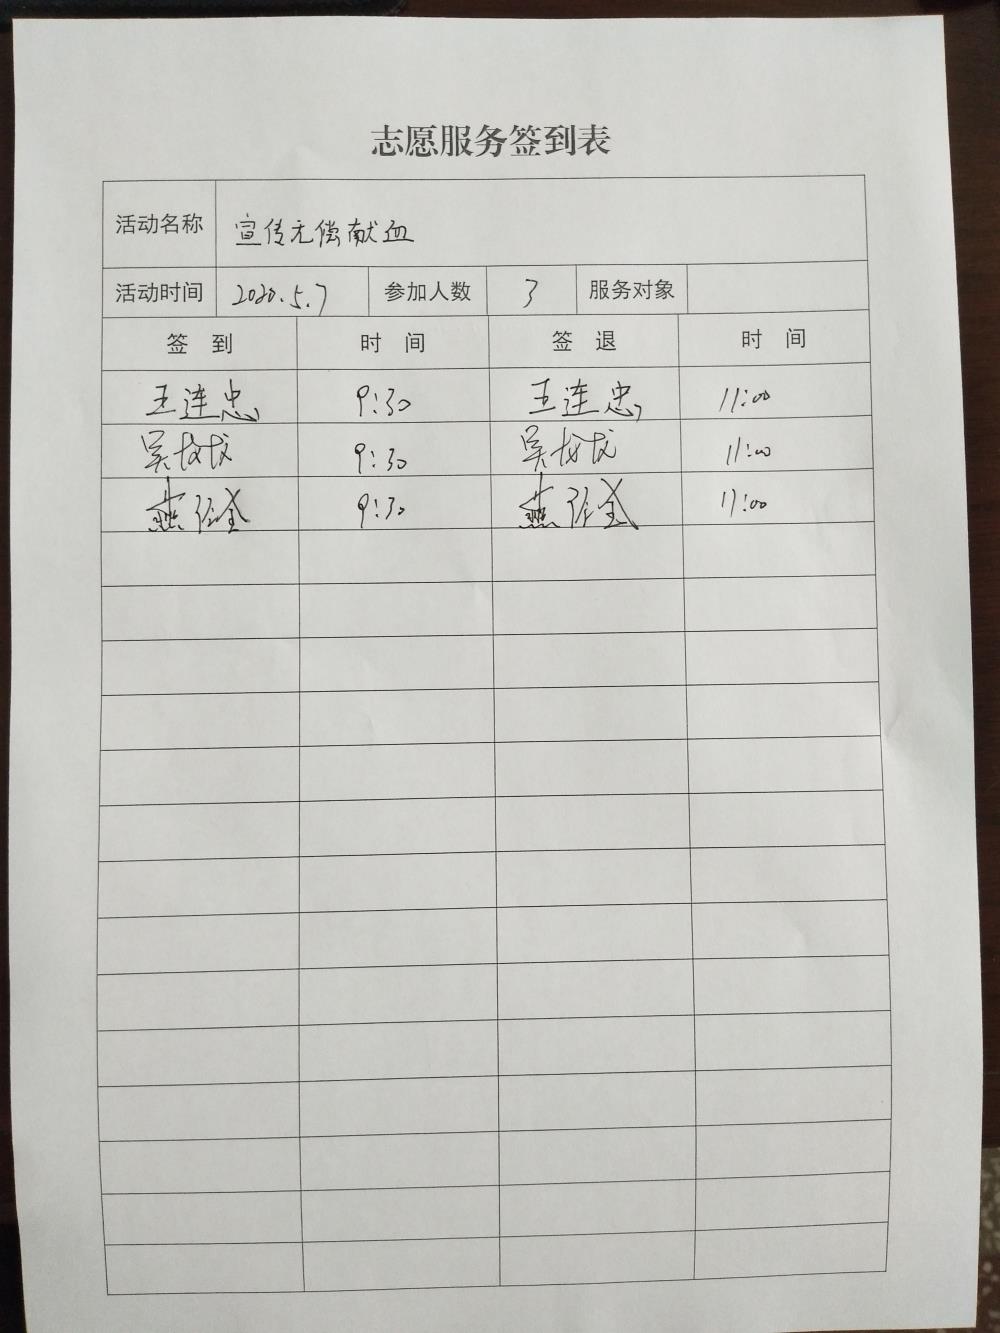 志愿服务签到表
活动名称 宣传无偿献血
活动时间 2020.5.7 参加人数 3 服务对象
签 到 时 间 签 退 时 间
王连忠 9:30 王连忠 11:00
吴 9:30 吴 11:00
燕 9:30 燕 11:00